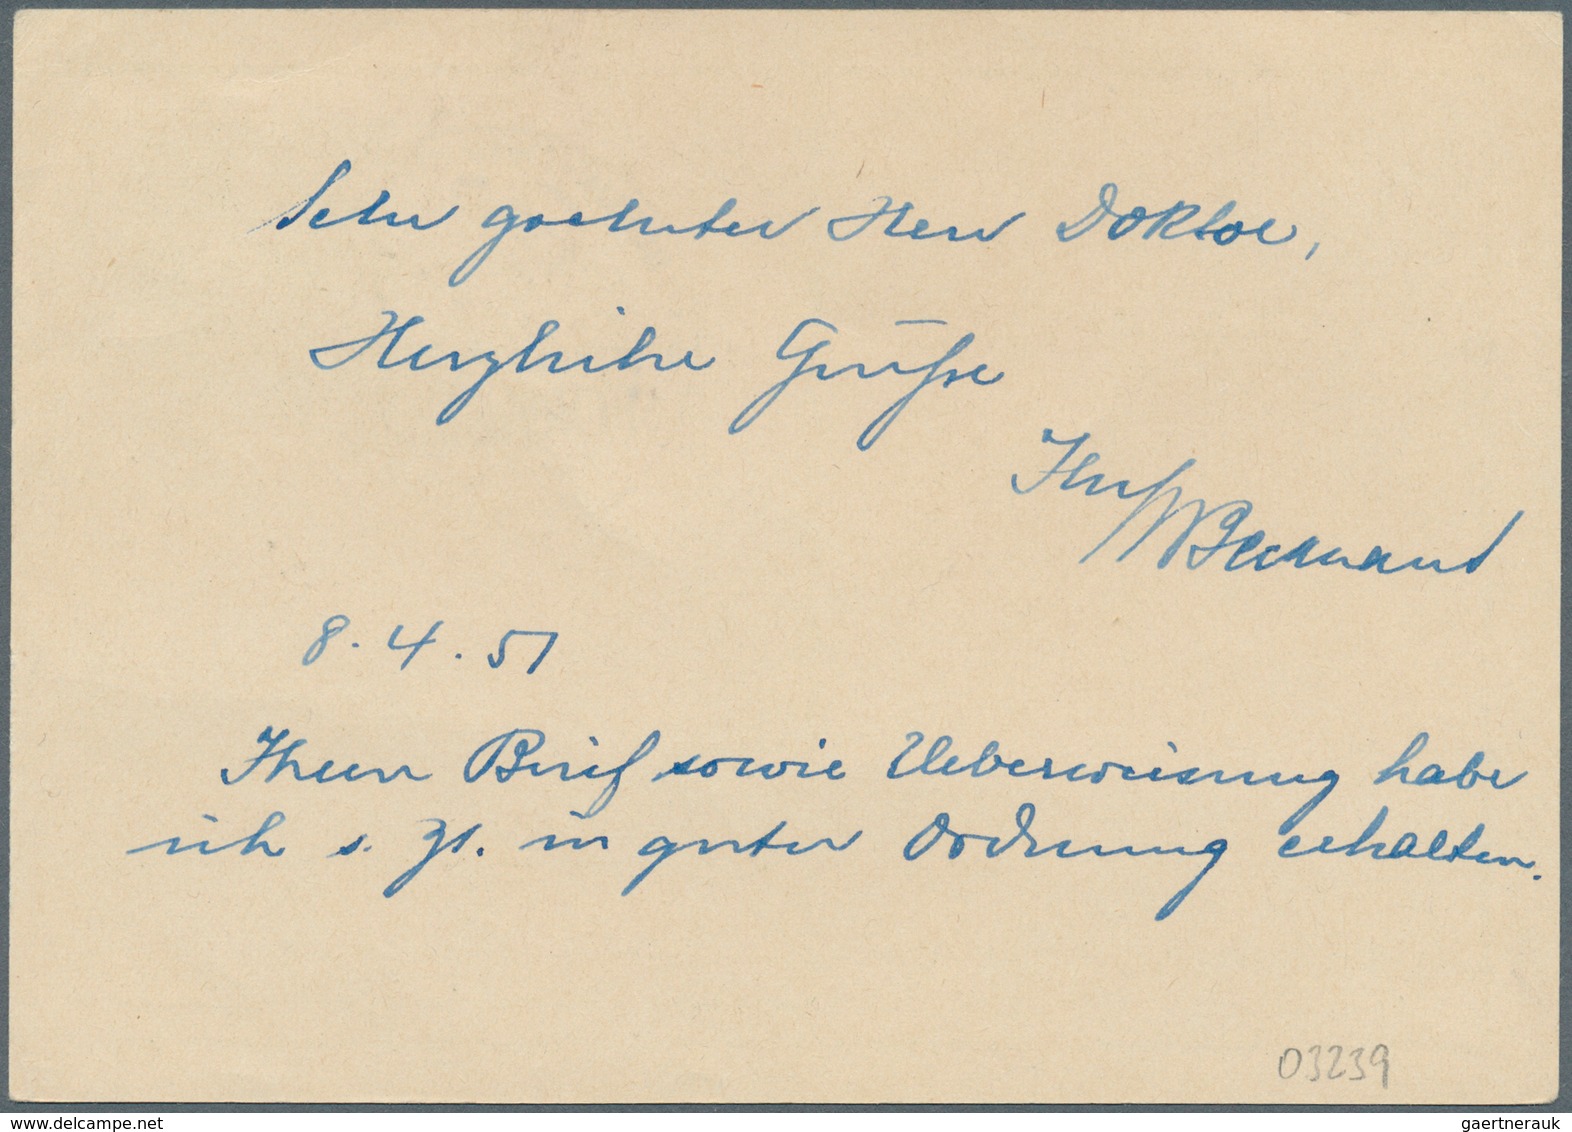 Sehr geehrter Herr Doktor,
Herzliche Grüße
Ihr
8.4.51
Ihren Brief sowie Ueberweisung habe
ich s. Zt. in guter Ordnung erhalten.
03239
delcampe.net
gaertnerauk